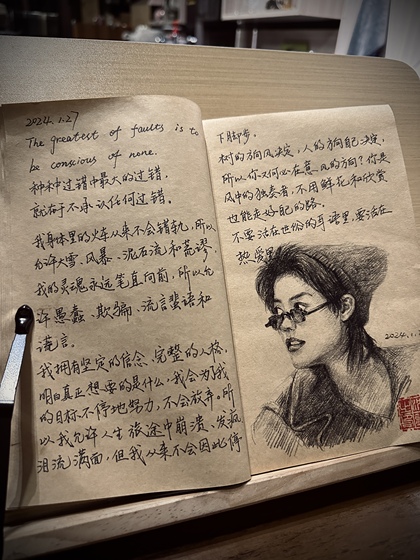 2024.1.27
The greatest of faults is to
be conscious of none.
种种过错中最大的过错，
就在于不承认任何过错。
我身体里的火车从来不会错轨，所以
允许大雪、风暴、泥石流和荒谬。
我的灵魂永远笔直向前，所以允
许愚蠢、欺骗、流言蜚语和
谎言。
我拥有坚定的信念、完整的人格，
明白真正想要的是什么，我会为了我
的目标不停地努力，不会放弃。所
以我允许人生旅途中崩溃、发疯
泪流满面，但我从来不会因此停
下脚步。
树的方向风决定，人的方向自己决定，
所以你又何必在意风的方向？你是
风中的独奏者，不用鲜花和欣赏
也能走好自己的路。
不要活在世俗的耳语里，要活在
热爱里
2024.1